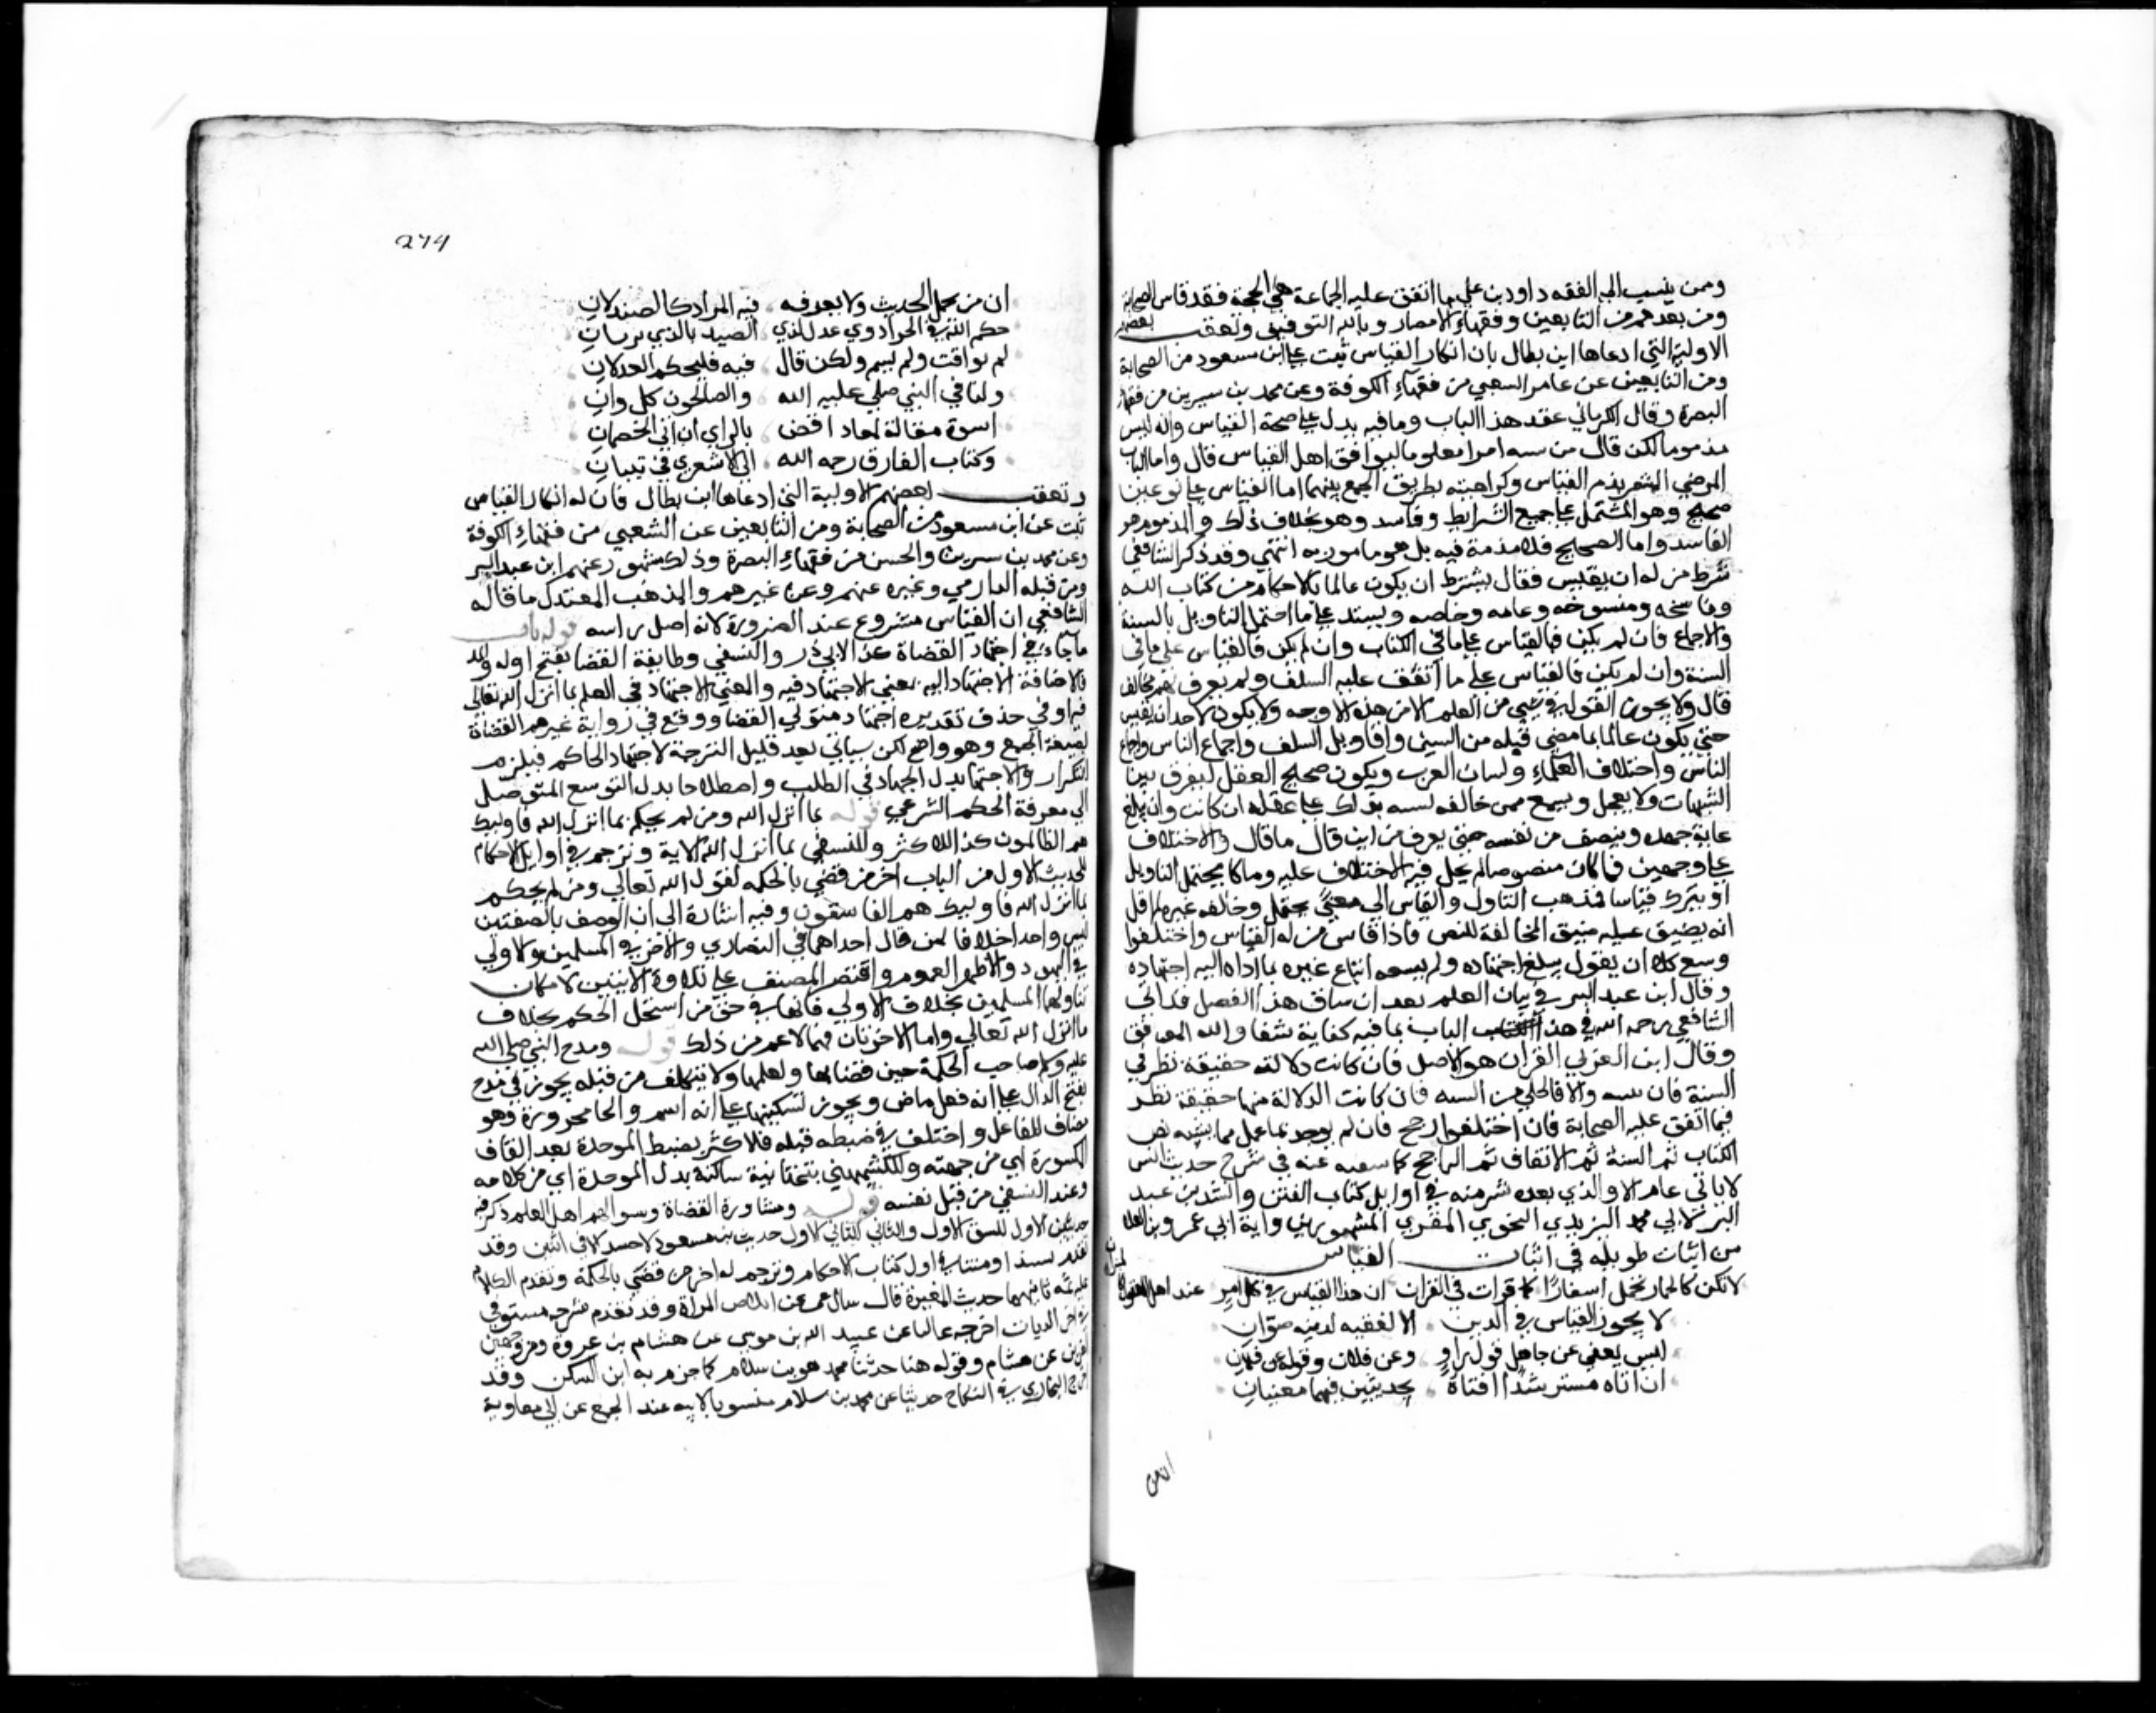 ومن ينسب الى الفقه داود بن علي ما اتفق عليه الجماعة هي الحجة فقد قاس الصحابة
ومن بعدهم من التابعين وفقهاء الامصار وبالله التوفيق وتعقب بعضهم
الاولية التي ادعاها ابن بطال بان انكار القياس ثبت عن ابن مسعود من الصحابة
ومن التابعين عن عامر الشعبي من فقهاء الكوفة وعن محمد بن سيرين من فقهاء
البصرة وقال الكرماني عقد هذا الباب وما فيه يدل على صحة القياس وانه ليس
مذموما لكن قال من شبه امرا معلوما ليوافق اهل القياس قال واما الباب
المرضي المشعر بذم القياس وكراهته بطريق الجمع بينهما اما القياس على نوعين
صحيح وهو المشتمل على جميع الشرايط وفاسد وهو بخلاف ذلك والمذموم هو
الفاسد واما الصحيح فلا مذمة فيه بل هو مامور به انتهي وقد ذكر الشافعي
شرط من له ان يقيس فقال يشترط ان يكون عالما بالاحكام من كتاب الله
وناسخه ومنسوخه وعامه وخاصه ويستدل على ما احتمل التاويل بالسنة
والاجماع فان لم يكن فالقياس على ما في الكتاب وان لم يكن فالقياس على ما في
السنة وان لم يكن فالقياس على ما اتفق عليه السلف ولم يعرف لهم مخالف
قال ولا يجوز القول في شي من العلم الا من هذه الاوجه ولا يكون لاحد ان يقيس
حتى يكون عالما بما مضي قبله من السنن واقاويل السلف واجماع الناس
الناس واختلاف العلماء ولسان العرب ويكون صحيح العقل ليفرق بين
الشبهات ولا يعجل ويسمع ممن خالفه
غاية جهده وينصف من نفسه حتى يعرف من اين قال ما قال والاختلاف
على وجهين فما كان منصوصا لم يحل فيه الاختلاف عليه وما كان يحتمل التاويل
او يدرك قياسا فذهب المتاول والقايس الى معنى يحتمل وخالفه غيره لم اقل
انه يضيق عليه ضيق المخالفة للنص فاذا قاس من له القياس واختلفوا
وسع كلا ان يقول بمبلغ اجتهاده ولم يسعه اتباع غيره بما اداه اليه اجتهاده
وقال ابن عبد البر في بيان العلم بعد ان ساق هذا الفصل قد اتى
الشافعي رحمه الله في هذا الباب بما فيه كفاية شفا والله الموفق
وقال ابن العربي القران هو الاصل فان كانت دلالته خفية نظر في
السنة فان بينته والا فالجلي من السنة فان كانت الدلالة منها خفية نظر
فيما اتفق عليه الصحابة فان اختلفوا رجح فان لم يوجد عمل مما يشبه نص
الكتاب ثم السنة ثم الاتفاق ثم الراجح كما سقته عنه في شرح حديث انس
لا ياتي عام الا والذي بعده شر منه في اوايل كتاب الفتن وانشد بن عبد
البر لابي محمد اليزيدي النحوي المقري المشهور برواية ابي عمرو بن العلا
من ابيات طويلة في اثبات القياس
لا تكن كالحمار يحمل اسفارا كما قرات في القران ان هذا القياس في كل امر عند اهل العقول
لا يجوز القياس في الدين الا لفقيه لدينه صوان
ليس يغني عن جاهل قول راو وعن فلان وقوله عن فلان
ان اتاه مسترشدا افتاه بحديثين فيهما معنيان
274
ان من يحمل الحديث ولا يعرف فيه المراد كالصيدلان
حكم الله في الجزا ذوي عدل لذي الصيد بالذي يريان
لم يواقت ولم يسم ولكن قال فيه فليحكم العدلان
ولنا في النبي صلى عليه الله والصالحون كل وان
اسوة مقالة لمعاذ اقض بالراي ان اتى الخصمان
وكتاب الفاروق رحمه الله الى الاشعري في تبيان
وتعقب بعضهم الاولية التي ادعاها ابن بطال فان له انكار القياس
ثبت عن ابن مسعود من الصحابة ومن التابعين عن الشعبي من فقهاء الكوفة
وعن محمد بن سيرين والحسن من فقهاء البصرة وذلك مشهور عنهم ابن عبد البر
ومن قبله الدارمي وغيره عنهم وعن غيرهم والمذهب المعتدل ما قاله
الشافعي ان القياس مشروع عند الضرورة لا انه اصل براسه قوله باب
ما جاء في اجتهاد القضاة كذا لابي ذر والنسفي وطايفة القضا بفتح اوله والمد
بالاضافة الاجتهاد اليه بمعني الاجتهاد فيه والمعني الاجتهاد في الحكم بما انزل الله تعالى
فيه او في حذف تقديره اجتهاد متولي القضا ووقع في رواية غيرهم القضاة
بصيغة الجمع وهو واضح لكن سياتي بعد قليل الترجمة لاجتهاد الحاكم فيلزم
التكرار والاجتهاد بذل الجهد في الطلب واصطلاحا بذل الوسع للتوصل
الى معرفة الحكم الشرعي قوله بما انزل الله ومن لم يحكم بما انزل الله فاوليك
هم الظالمون كذا للاكثر وللنسفي بما انزل الله الاية وترجم في اوايل الاحكام
للحديث الاول من الباب اجر من قضى بالحكمة لقول الله تعالى ومن لم يحكم
بما انزل الله فاوليك هم الفاسقون وفيه اشارة الى ان الوصف بالصفتين
ليس واحد اخلافا لمن قال احداهما في النصاري والاخرى في المسلمين والاولي
في اليهود والاظهر العموم واقتصر المصنف على تلاوة الايتين لامكان
تناولهما المسلمين بخلاف الاولي فانها في حق من استحل الحكم بخلاف
ما انزل الله تعالى واما الاخرتان فهما لاعم من ذلك قوله ومدح النبي صلى الله
عليه وسلم صاحب الحكمة حين قضا بها وعلمها ولا يتكلف من قبله يجوز في مدح
بفتح الدال على انه فعل ماض ويجوز تسكينها على انه اسم والحا مجرورة وهو
مضاف للفاعل واختلف في ضبط قبله فللاكثر بضبط الموحدة بعد القاف
المكسورة اي من جهته وللكشميهني بتحتانية ساكنة بدل الموحدة اي من كلامه
وعند النسفي من قبل نفسه قوله ومشاورة القضاة وسوالهم اهل العلم ذكر فيه
حديثين الاول للشق الاول والثاني للثاني الاول حديث بن مسعود لا حسد الا في اثنين وقد
تقدم سندا ومتنا في اول كتاب الاحكام وترجم له اجر من قضى بالحكمة وتقدم الكلام
عليه ثمه ثانيهما حديث المغيرة قال سال عمر عن املاص المراة وقد تقدم شرحه مستوفى
في اخر الديات اخرجه عاليا عن عبيد الله بن موسى عن هشام بن عروة ومن وجهين
اخرين عن هشام وقوله هنا حدثنا محمد هو بن سلام كما جزم به ابن السكن وقد
اخرج البخاري في النكاح حديثا عن محمد بن سلام منسوبا لابيه عند الجميع عن ابي معاوية